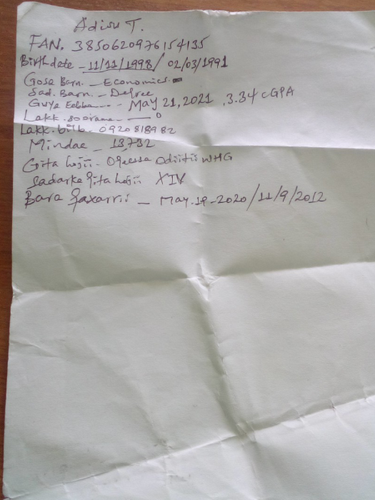 Adisu T.
FAN. 3850620976154135
Birthdate - 11/11/1998/ 02/03/1991
Gose Barn. - Economics
Sad. Barn - Degree
Guya Eebba - May 21,2021 , 3.34 CGPA
Lakk. - 0
Lakk. bilb. 0920818982
Mindaa - 13732
Gita hojii - Ogeessa Odiitii WHG
Sadarka Gita hojii XIV
Bara Qaxarrii - May. 19-2020/11/9/2012